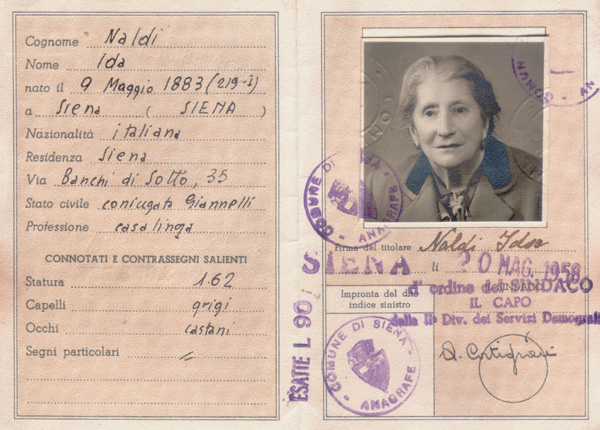 Cognome Naldi
Nome Ida
nato il 9 Maggio 1883 (219-I)
a Siena ( SIENA )
Nazionalità italiana
Residenza Siena
Via Banchi di Sotto, 35
Stato civile coniugata Giannelli
Professione casalinga
CONNOTATI E CONTRASSEGNI SALIENTI
Statura 1.62
Capelli grigi
Occhi castani
Segni particolari =
COMUNE DI SIENA - ANAGRAFE -
Firma del titolare Naldi Ida
SIENA li 20 MAG. 1958
d'ordine del SINDACO
IL SINDACO
IL CAPO
della IIa Div. dei Servizi Demografi
Impronta del dito
indice sinistro
ESATTE L 90
COMUNE DI SIENA - ANAGRAFE -